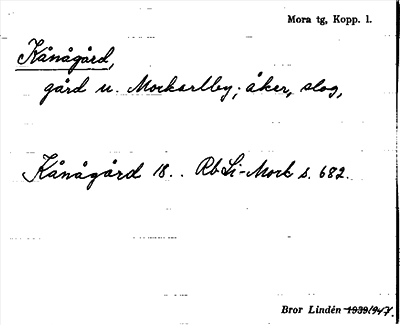 Mora tg, Kopp. l.
Kånågård,
gård u. Mockarlby; åker, slog,
Kånågård 18. . Rb Li-Mork s. 682.
Bror Lindén 1939/947.